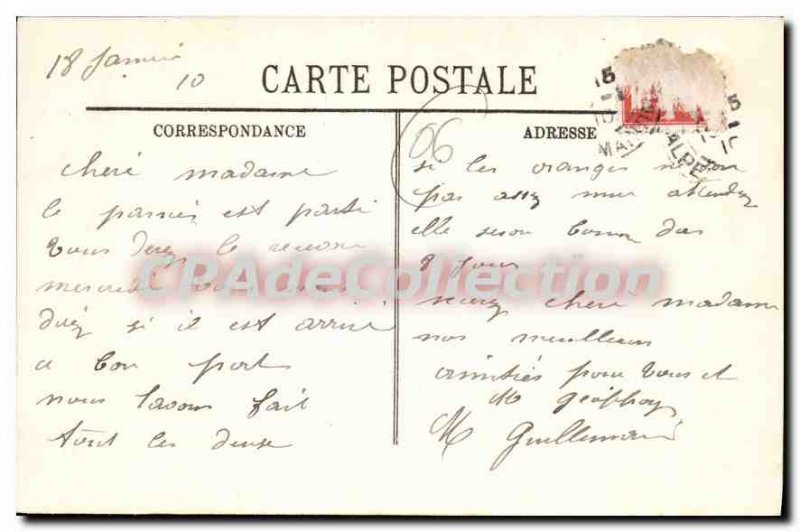 18 Janvié
10
CARTE POSTALE
CORRESPONDANCE
ADRESSE
06
15
5
10
ALPES
cheré madame
le panié est parti
vous devez le recevoir
mercredi vous
diréz si il est arrivé
a bon port
nous lavons fait
tout les deuse
si les oranges ne son
pas assez mur attendez
elle seron bonne das
8 jour
recevez cheré madame
nos meilleurs
amitiés pour vous et
M geoffroy
M Guillemard
CPAdeCollection.com